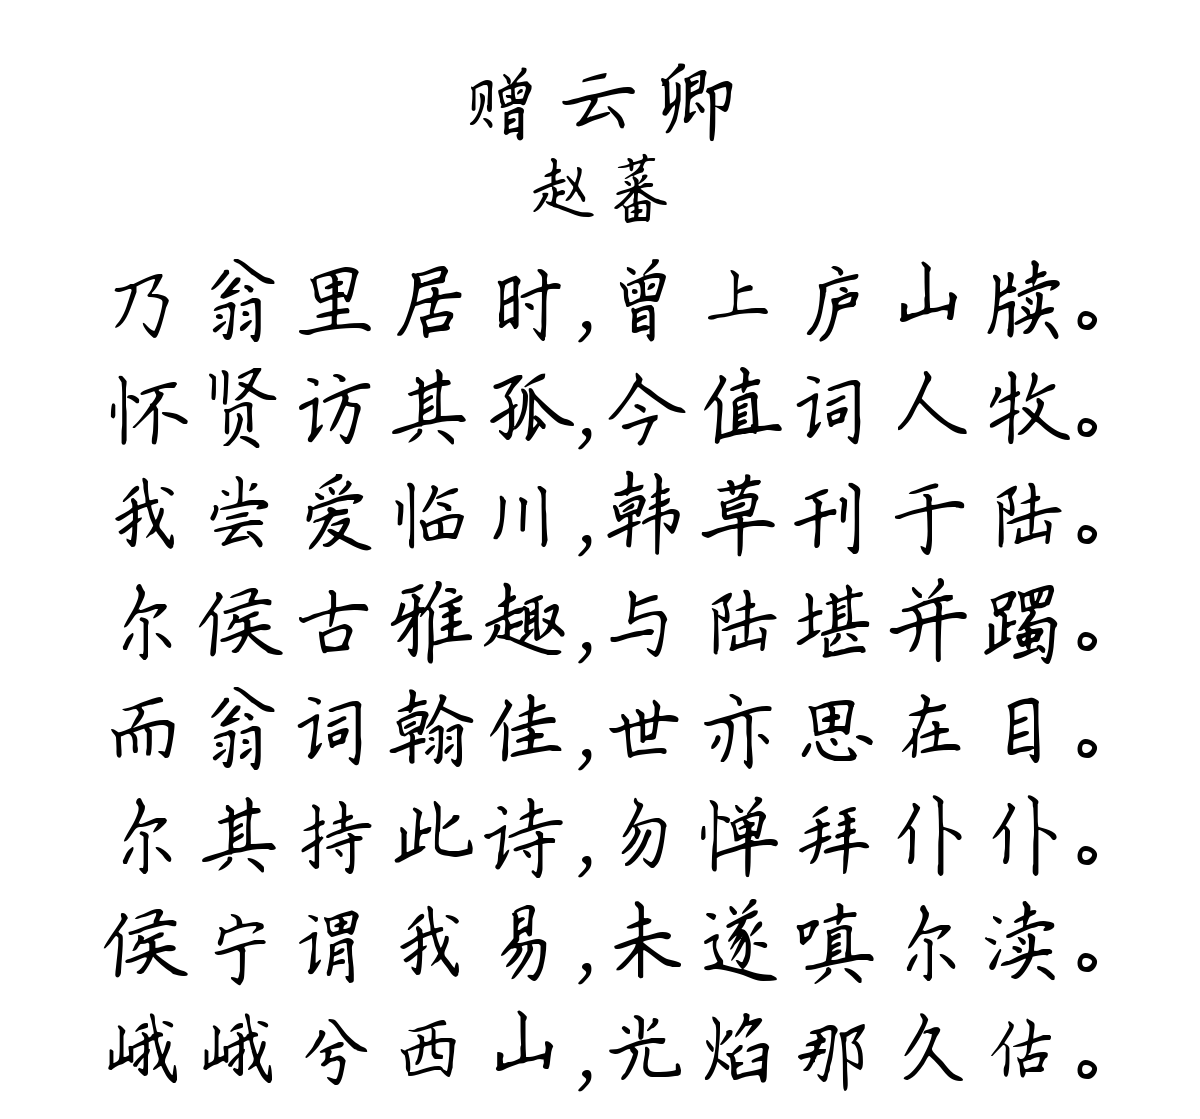 赠云卿
赵蕃
乃翁里居时,曾上庐山牍。
怀贤访其孤,今值词人牧。
我尝爱临川,韩草刊于陆。
尔侯古雅趣,与陆堪并躅。
而翁词翰佳,世亦思在目。
尔其持此诗,勿惮拜仆仆。
侯宁谓我易,未遂嗔尔渎。
峨峨兮西山,光焰那久估。